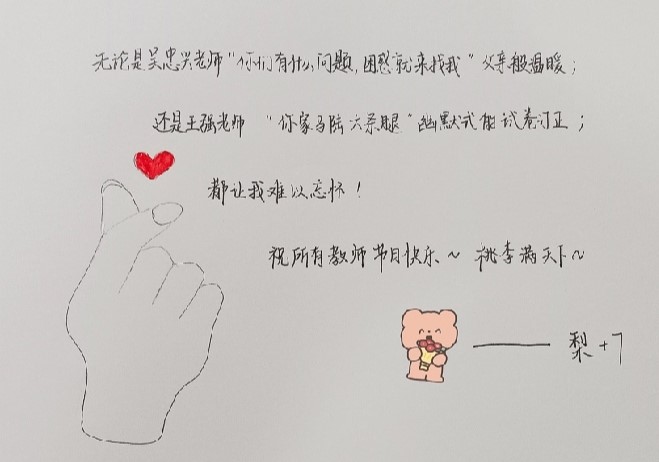 无论是吴忠兴老师“你们有什么问题，困惑就来找我”父亲般温暖；
还是王强老师 “你家马陆六条腿”幽默式的试卷订正；
都让我难以忘怀！
祝所有教师节日快乐～ 桃李满天下～
—— 梨+7